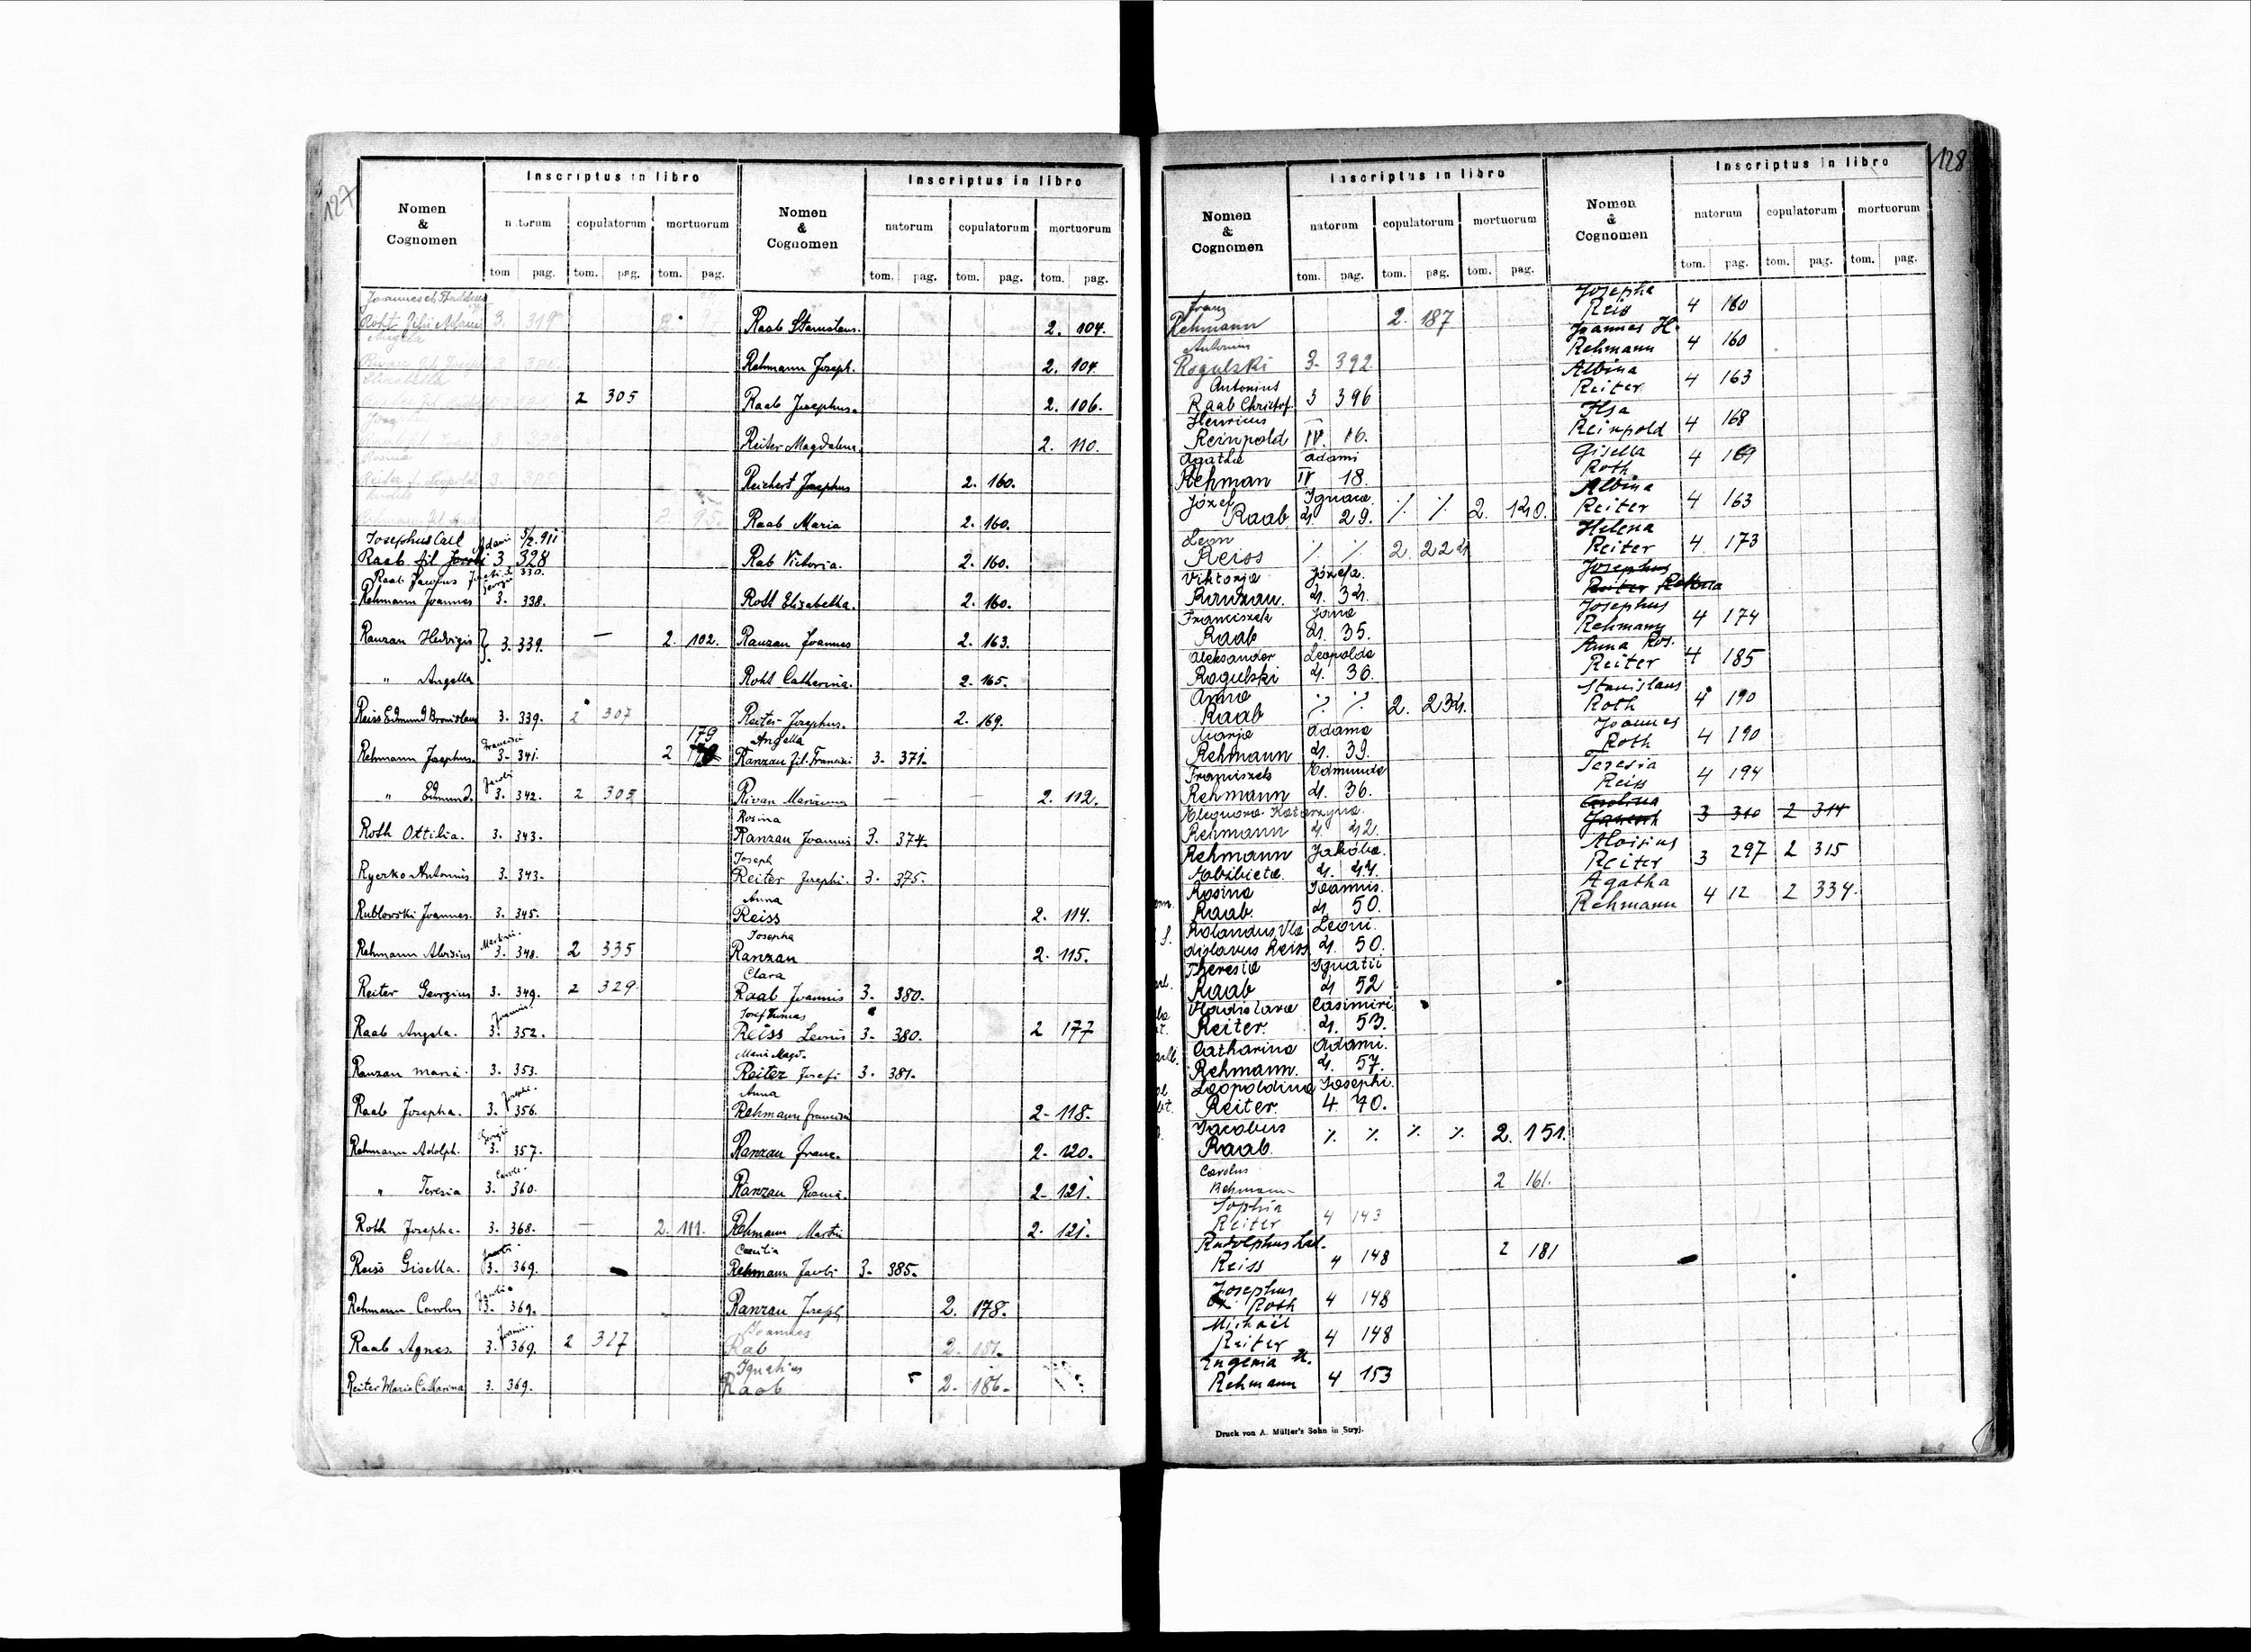 127
Nomen & Cognomen
Inscriptus in libro
natorum copulatorum mortuorum
tom. pag. tom. pag. tom. pag.
Joannes et Thaddeus
Roht filii Adami 3. 319
Angela
Elisabetha
2 305
Rosina
Reiter f. Leopoldi 3.
2. 95.
Josephus Carl Adami 5/2.911
Raab fil Jacobi 3 328
Raab Jacobus Jacobi 3 330.
Rehmann Joannes Georgii 3. 338.
Ranzan Hedvigis 3. 339. — 2. 102.
" Angella
Reiss Edmund Bronislaus 3. 339. 2 307
179
Rehmann Josephus Francisci 3. 341. 2
" Edmund. Jacobi 3. 342. 2 305
Roth Ottilia. 3. 343.
Ryerko Antonius 3. 343.
Rublowski Joannes. 3. 345.
Rehmann Aloisius Martini 3. 348. 2 335
Reiter Georgius 3. 349. 2 329
Raab Angela. Joannis 3. 352.
Ranzan Maria. 3. 353.
Raab Josepha. Josephi 3. 356.
Rehmann Adolph. Georgii 3. 357.
" Teresia Caroli 3. 360.
Roth Josepha. 3. 368. — 2. 111.
Reiss Gisella. Jacobi 3. 369.
Rehmann Carolus 3. 369.
Raab Agnes. Joannis 3. 369. 2 317
Reiter Maria Catharina 3. 369.
Nomen & Cognomen
Inscriptus in libro
natorum copulatorum mortuorum
tom. pag. tom. pag. tom. pag.
Raab Stanislaus. 2. 104.
Rehmann Joseph. 2. 104.
Raab Josephus. 2. 106.
Reiter Magdalena. 2. 110.
Reichert Josephus 2. 160.
Raab Maria 2. 160.
Rab Victoria. 2. 160.
Roth Elizabetha. 2. 160.
Ranzan Joannes 2. 163.
Roht Catherina. 2. 165.
Reiter Josephus. 2. 169.
Angella
Ranzau fil. Francisci 3. 371.
Rivan Marianna — — 2. 112.
Rosina
Ranzau Joannis 3. 374.
Joseph
Reiter Josephi. 3. 375.
Anna
Reiss 2. 114.
Josepha
Ranzau 2. 115.
Clara
Raab Joannis 3. 380.
Josef Tomas
Reiss Leonis 3. 380. 2 177
Maria Magd.
Reiter Josefi 3. 381.
Anna
Rehmann Francisca 2. 118.
Ranzau Franc. 2. 120.
Ranzau Rosina. 2. 121.
Rehmann Martin 2. 121.
Caecilia
Rehmann Jacobi 3. 385.
Ranzau Joseph 2. 178.
Joannes
Rab 2. 181.
Ignatius
Raab 2. 186.
128
Nomen & Cognomen
Inscriptus in libro
natorum copulatorum mortuorum
tom. pag. tom. pag. tom. pag.
Franz
Rehmann 2. 187
Antonius
Rogulski 3. 392.
Antonius
Raab Christof. 3 396
Henricus
Reinpold IV. 16.
Agatha Adami
Rehman IV 18.
Józef Ignaca.
Raab 4. 29. ⁒ ⁒ 2. 140.
Leon
Reiss ⁒ ⁒ 2. 224
Viktorja Józefa.
Ranzau. 4. 34.
Franciszek Jana
Raab 4. 35.
Aleksander Leopolda
Rogulski 4. 36.
Anna
Raab ⁒ ⁒ 2. 234.
Marja Adama
Rehmann 4. 39.
Franciszek Edmunda
Rehmann 4. 36.
Eleonora Katarzyna
Rehmann 4. 42.
Rehmann Jakóba.
Elbibieta 4. 44.
Rosina Joannis.
Raab. 4 50.
Rolandus Vla Leoni.
dislavus Reiss 4. 50.
Theresia Ignatii
Raab 4 52
Vladislava Casimiri
Reiter. 4. 53.
Catharina Adami.
Rehmann. 4. 57.
Leopoldina Josephi.
Reiter. 4. 70.
Jacobus
Raab. ⁒ ⁒ ⁒ ⁒ 2. 151.
Carolus
Rehmann 2 161.
Sophia
Reiter 4 143
Rudolphus Lad.
Reiss 4 148 2 181
Josephus
Roth 4 148
Michaël
Reiter 4 148
Eugenia H.
Rehmann 4 153
Nomen & Cognomen
Inscriptus in libro
natorum copulatorum mortuorum
tom. pag. tom. pag. tom. pag.
Josepha
Reis 4 160
Joannes H.
Rehmann 4 160
Albina
Reiter 4 163
Ilsa
Reinpold 4 168
Gisella
Roth 4 169
Albina
Reiter 4 163
Helena
Reiter 4. 173
Josephus
Reiter
Josephus
Rehmann 4 174
Anna Ros.
Reiter 4 185
Stanislaus
Roth 4 190
Joannes
Roth 4 190
Teresia
Reiss 4 194
Carolina
3 310 2 314
Aloisius
Reiter 3 297 2 315
Agatha
Rehmann 4 12 2 334.
Druck von A. Müller's Sohn in Stryj.